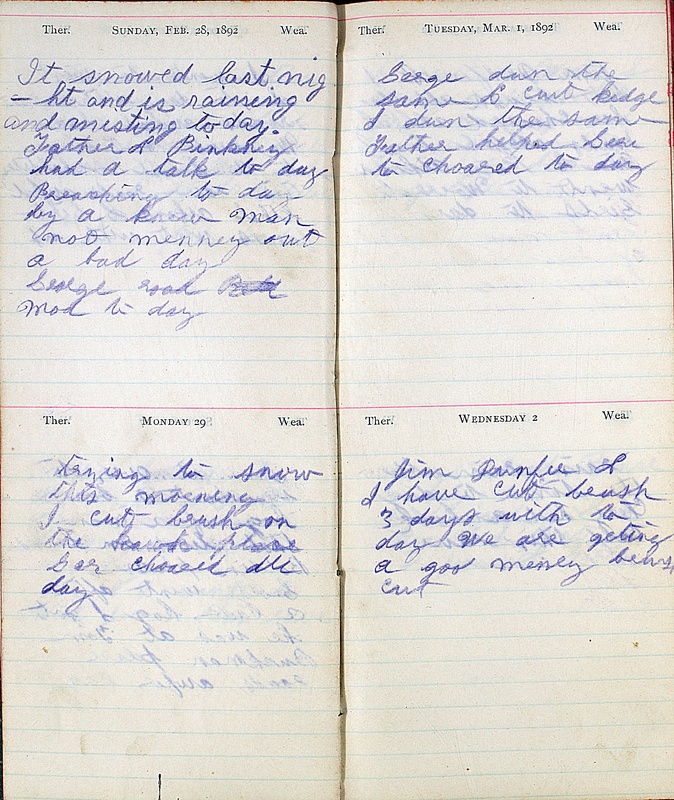 Ther. SUNDAY, FEB. 28, 1892 Wea.
It snowed last nig
= ht and is raining
and misting today.
Father & Binkney
had a talk to day
Preaching to day
by a know man
not menney out
a bad day
George road
Mod to day
Ther. MONDAY 29 Wea.
trying to snow
this morning
I cut brush on
the place
Gor choared all
day
Ther. TUESDAY, MAR. 1, 1892 Wea.
George dun the
same & cut hedge
I dun the same
Father helped
to choared to day
Ther. WEDNESDAY 2 Wea.
Jim Dunfee &
I have cut brush
3 days with to
day We are geting
a goo menney
cut